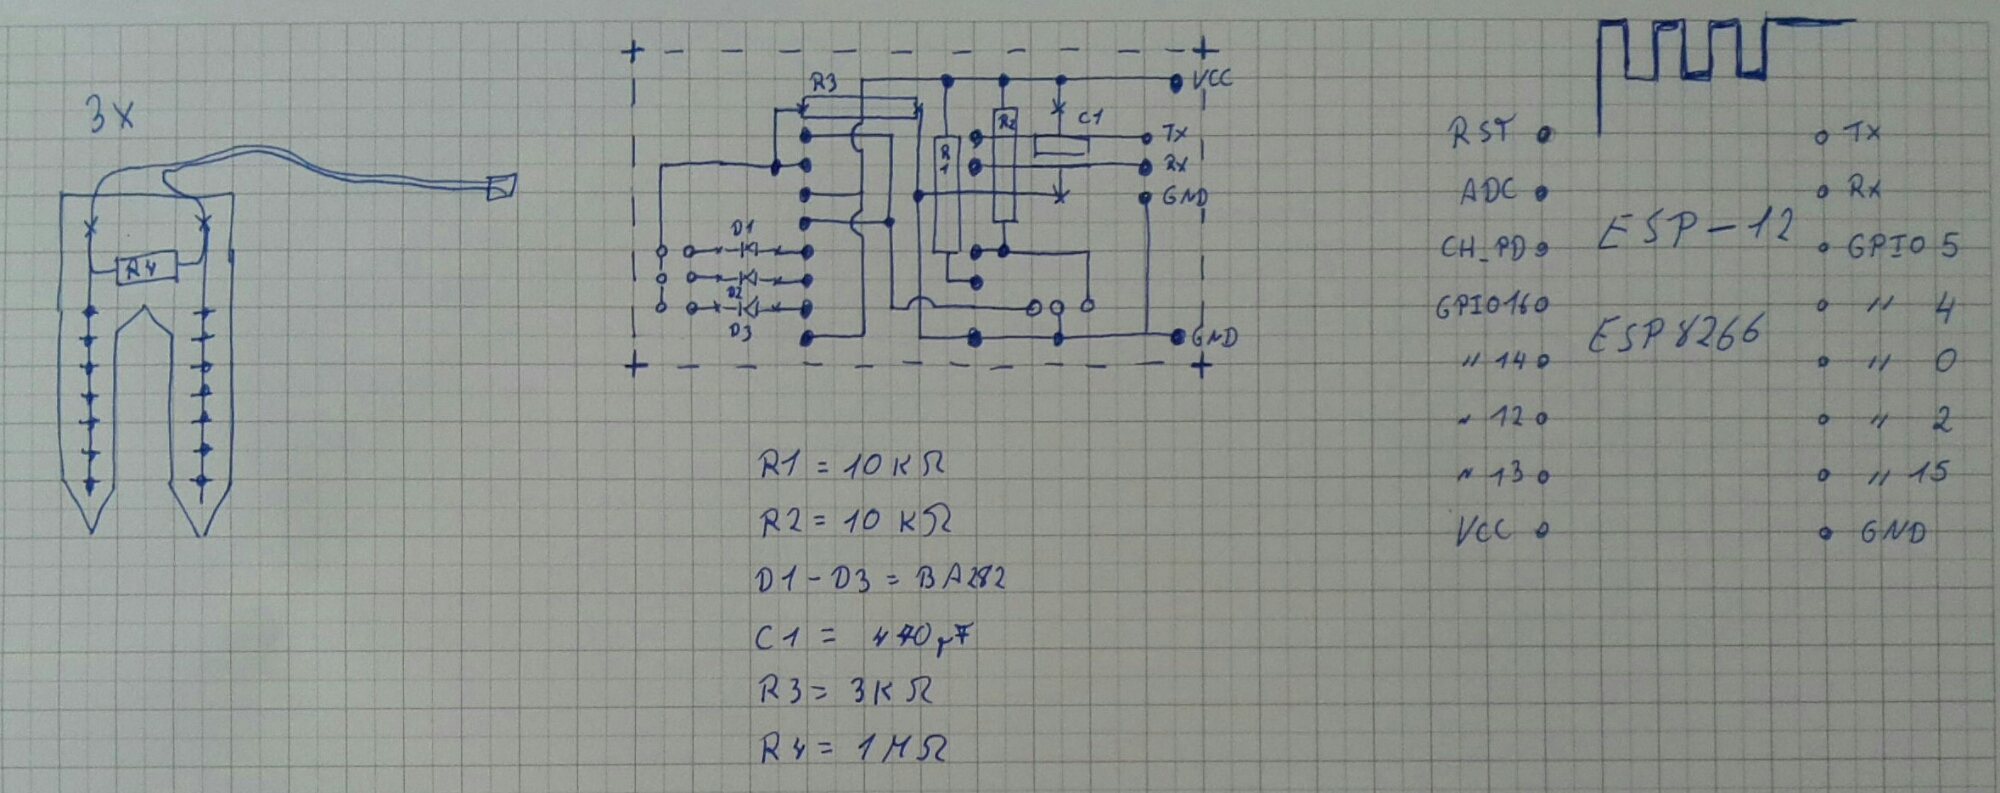 3X
R4
R3
D1
D2
D3
R1
R2
C1
VCC
TX
RX
GND
GND
R1 = 10KΩ
R2 = 10KΩ
D1-D3 = BA282
C1 = 470µF
R3 = 3KΩ
R4 = 1MΩ
ESP-12
ESP8266
RST
ADC
CH_PD
GPIO16
" 14
" 12
" 13
VCC
TX
RX
GPIO 5
" 4
" 0
" 2
" 15
GND